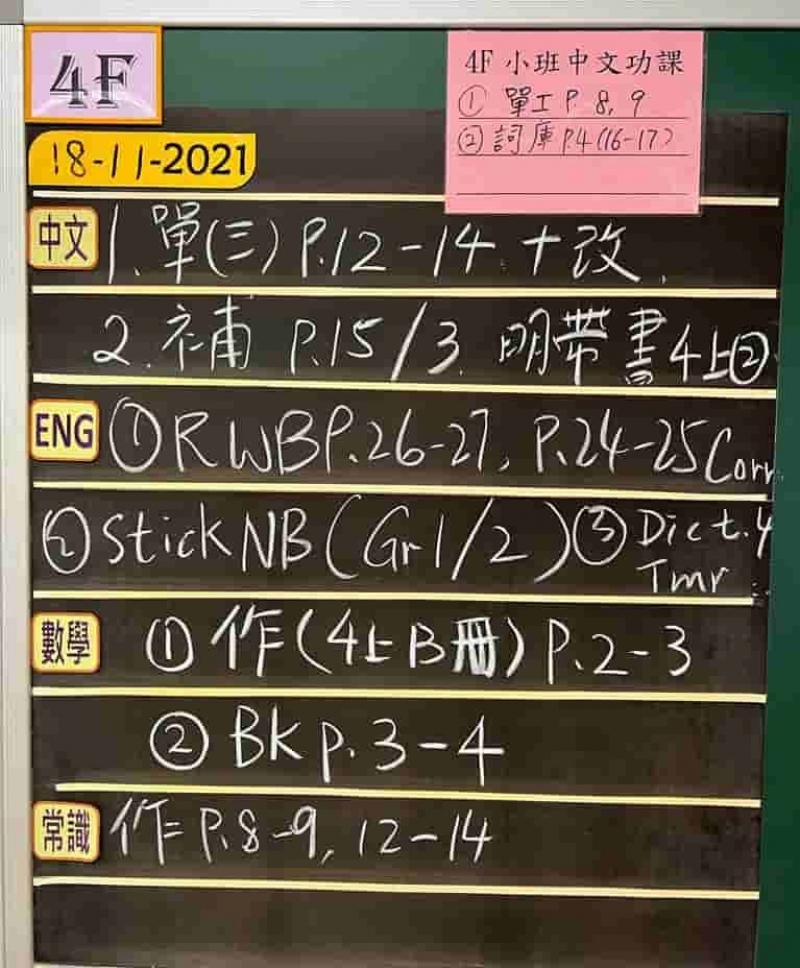 4F
4F 小班中文功課
① 單工 P. 8, 9
② 詞庫 P.4 (16-17)
18-11-2021
中文 1. 單(三) P.12-14 + 改.
2. 補 P.15/3. 明帶書4上②
ENG ① RWB P.26-27, P.24-25 Corr.
② Stick NB (Gr 1/2) ③ Dict. 4
Tmr
數學 ① 作(4上B冊) P.2-3
② BK p. 3-4
常識 作= P.8-9, 12-14